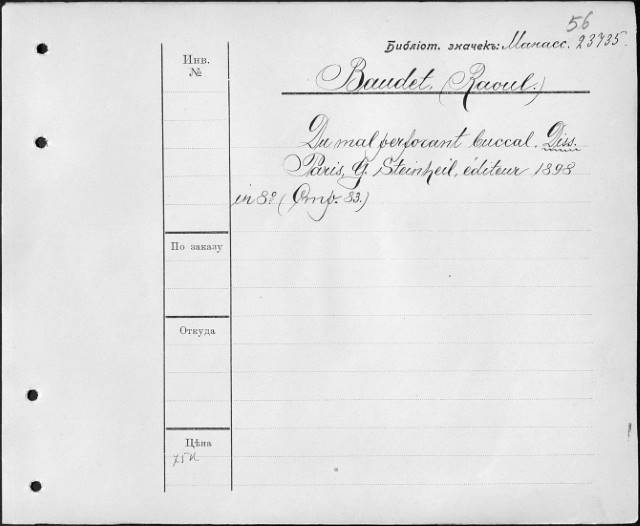 56
Библіот. значекъ: Манасс. 23735.
Инв.
№
Baudet. (Raoul.)
Du mal perforant buccal. Diss.
Paris, G. Steinheil, éditeur 1898
in 8º (Стр. 83.)
По заказу
Откуда
Цѣна
75к